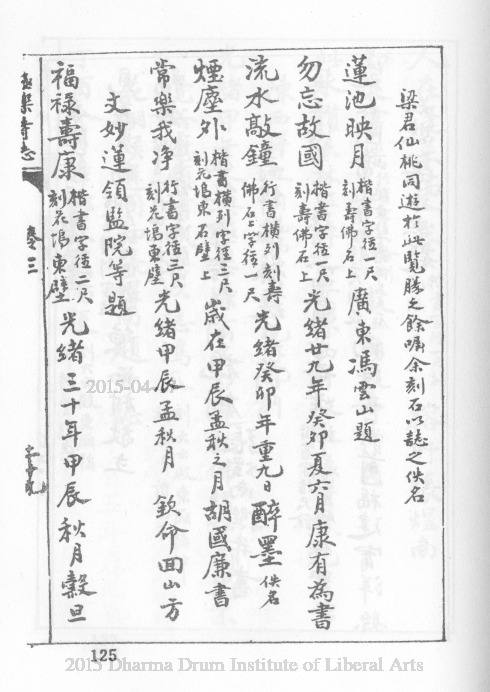 梁君仙桃同遊於此覽勝之餘囑余刻石以誌之佚名
蓮池映月楷書字徑一尺刻壽佛石上廣東馮雲山題
勿忘故國楷書字徑一尺刻壽佛石上光緒廿九年癸卯夏六月康有為書
流水敲鐘行書橫列刻壽佛石上字徑一尺光緒癸卯年重九日醉墨佚名
煙塵外楷書橫列字徑三尺刻花塢東石壁上歲在甲辰孟秋之月胡國廉書
常樂我净行書字徑三尺刻花塢東壁光緒甲辰孟秋月欽命回山方
丈妙蓮領監院等題
福祿壽康楷書字徑二尺刻花塢東壁光緒三十年甲辰秋月穀旦
極樂寺志
卷三
125
2015-04
2015 Dharma Drum Institute of Liberal Arts